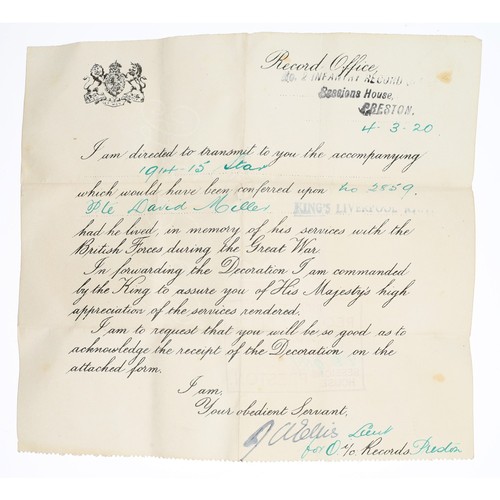 Record Office,
No. 2 INFANTRY RECORD
Sessions House,
PRESTON.
4-3-20.
I am directed to transmit to you the accompanying
1914-15 Star
which would have been conferred upon No 2859.
Pte David Miller
KING'S LIVERPOOL
had he lived, in memory of his services with the
British Forces during the Great War.
In forwarding the Decoration I am commanded
by the King to assure you of His Majesty's high
appreciation of the services rendered.
I am to request that you will be so good as to
acknowledge the receipt of the Decoration on the
attached form.
I am,
Your obedient Servant,
Ellis Lieut
for O. i/c Records. Preston